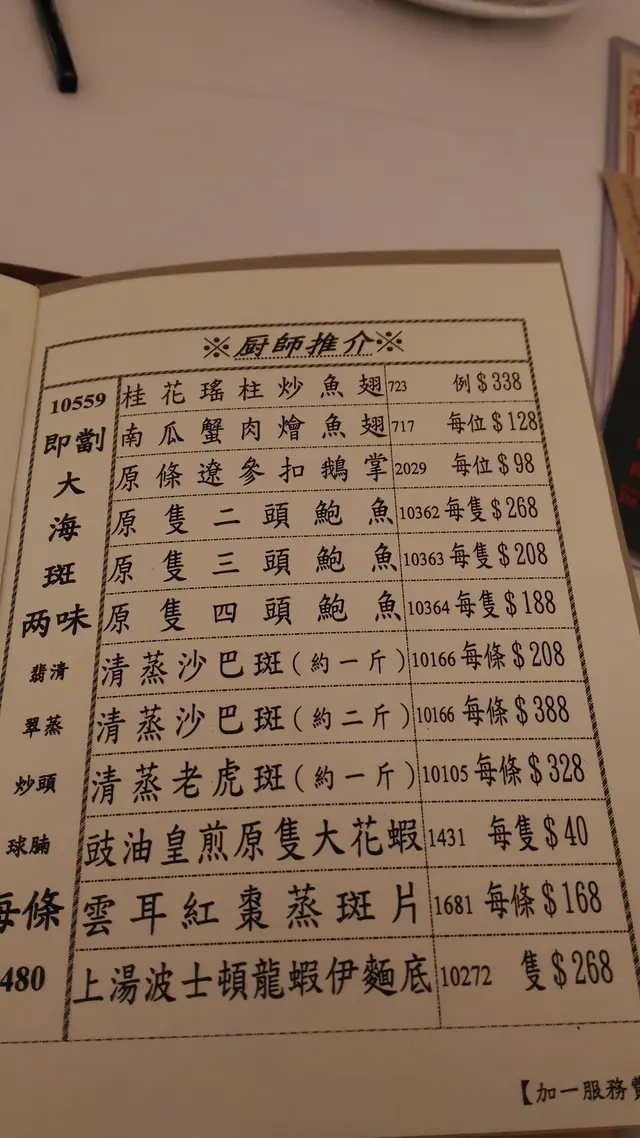 ※厨師推介※
10559
即劏
大
海
斑
两味
翡清
翠蒸
炒頭
球腩
每條
480
桂花瑤柱炒魚翅 723 例$338
南瓜蟹肉燴魚翅 717 每位$128
原條遼參扣鵝掌 2029 每位$98
原隻二頭鮑魚 10362 每隻$268
原隻三頭鮑魚 10363 每隻$208
原隻四頭鮑魚 10364 每隻$188
清蒸沙巴斑(約一斤) 10166 每條$208
清蒸沙巴斑(約二斤) 10166 每條$388
清蒸老虎斑(約一斤) 10105 每條$328
豉油皇煎原隻大花蝦 1431 每隻$40
雲耳紅棗蒸斑片 1681 每條$168
上湯波士頓龍蝦伊麵底 10272 隻$268
【加一服務費